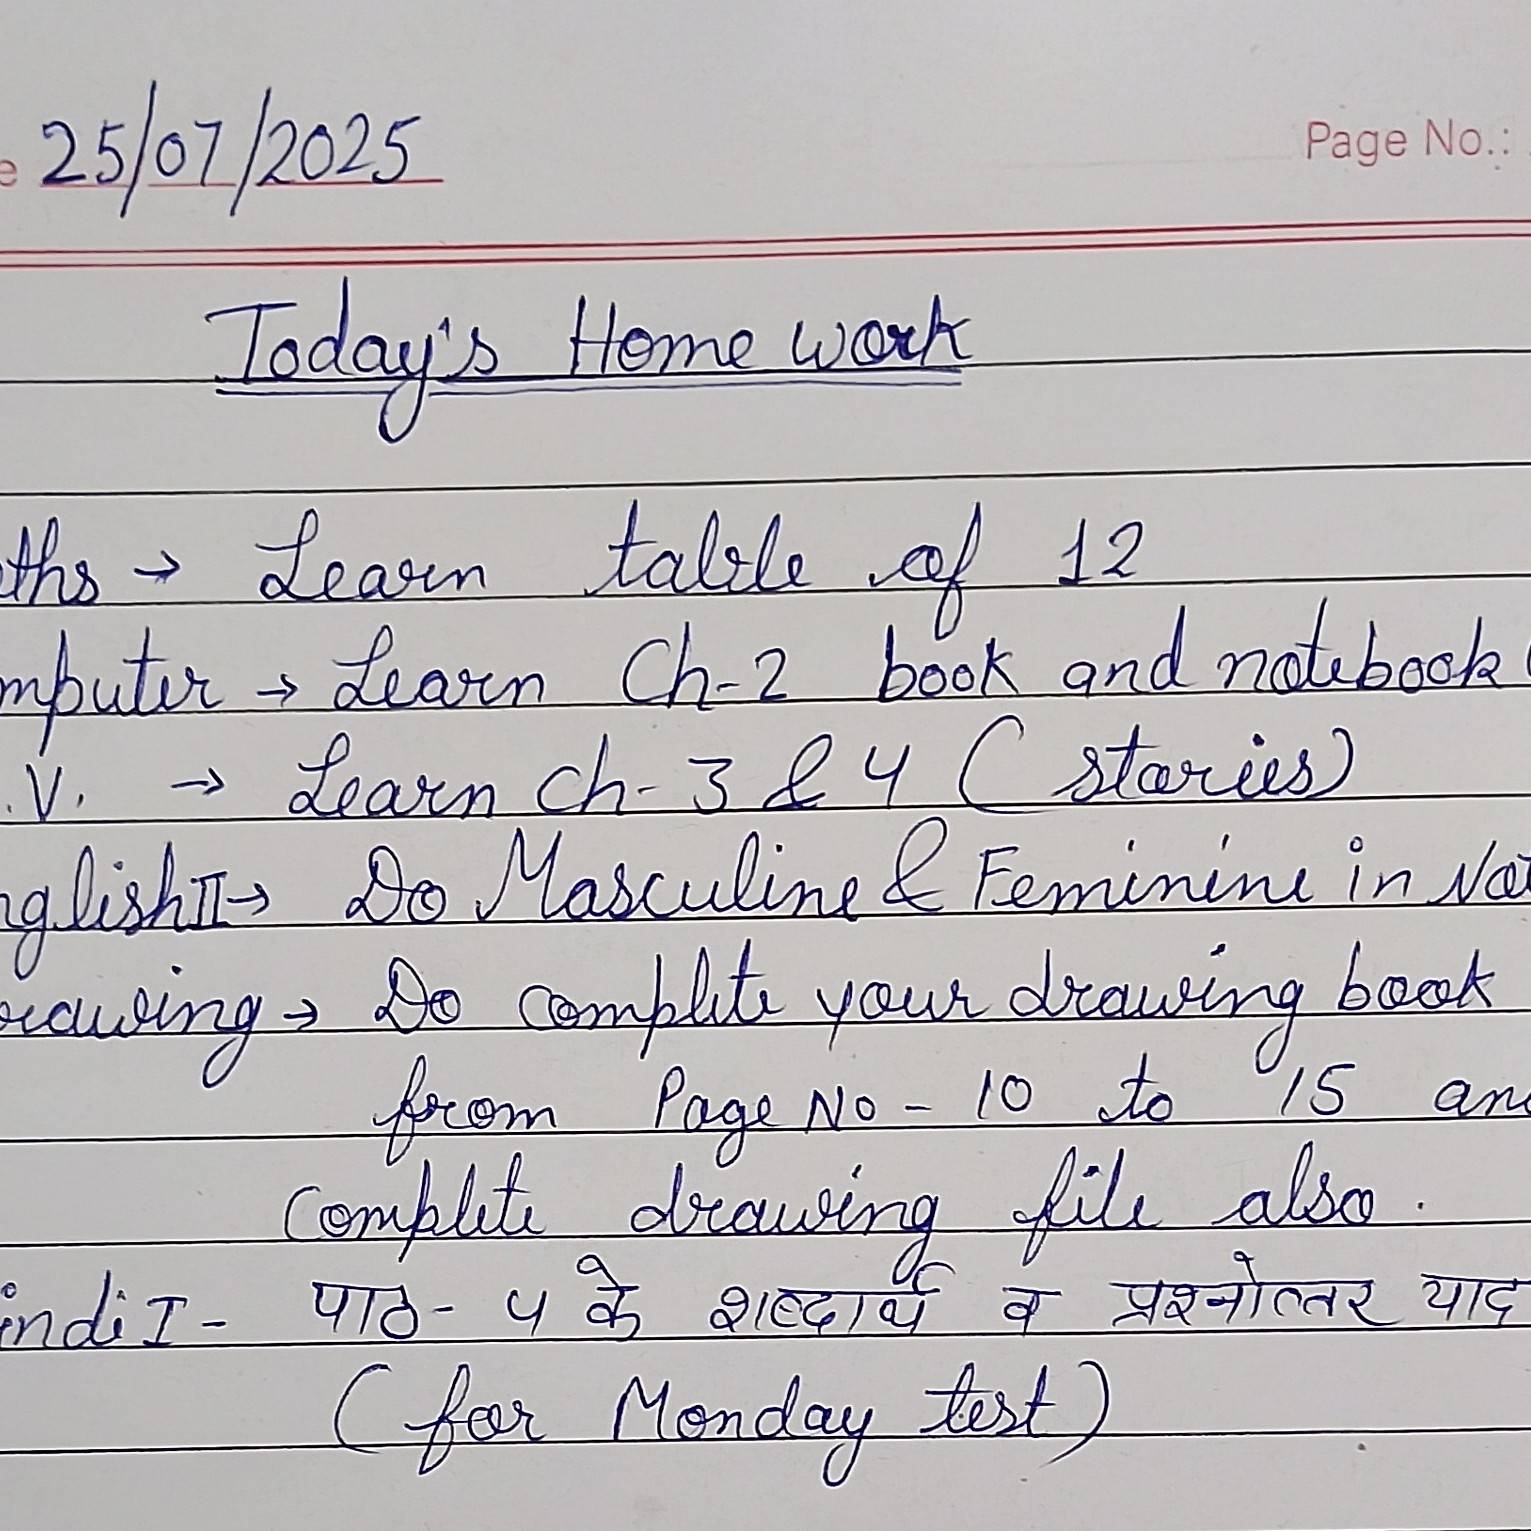 e 25/07/2025 Page No.:
Today's Home work
ths → Learn table of 12
mputer → Learn Ch-2 book and notebook (
.V. → Learn ch-3 & 4 ( stories)
nglish II → Do Masculine & Feminine in Not
rawing → Do complete your drawing book
from Page No - 10 to 15 and
complete drawing file also.
indi I - पाठ- 4 के शब्दार्थ व प्रश्नोत्तर याद
(for Monday test)